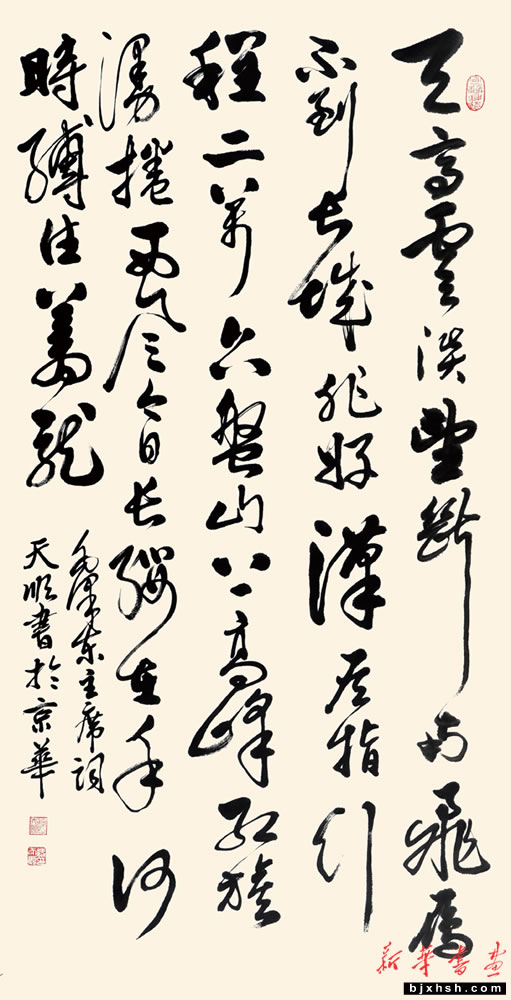 天高雲淡望斷南飛雁
不到長城非好漢屈指行
程二萬六盤山上高峰紅旗
漫捲西風今日長纓在手何
時縛住蒼龍
毛澤東主席詞
天順書於京華
新華書畫
bjxhsh.com